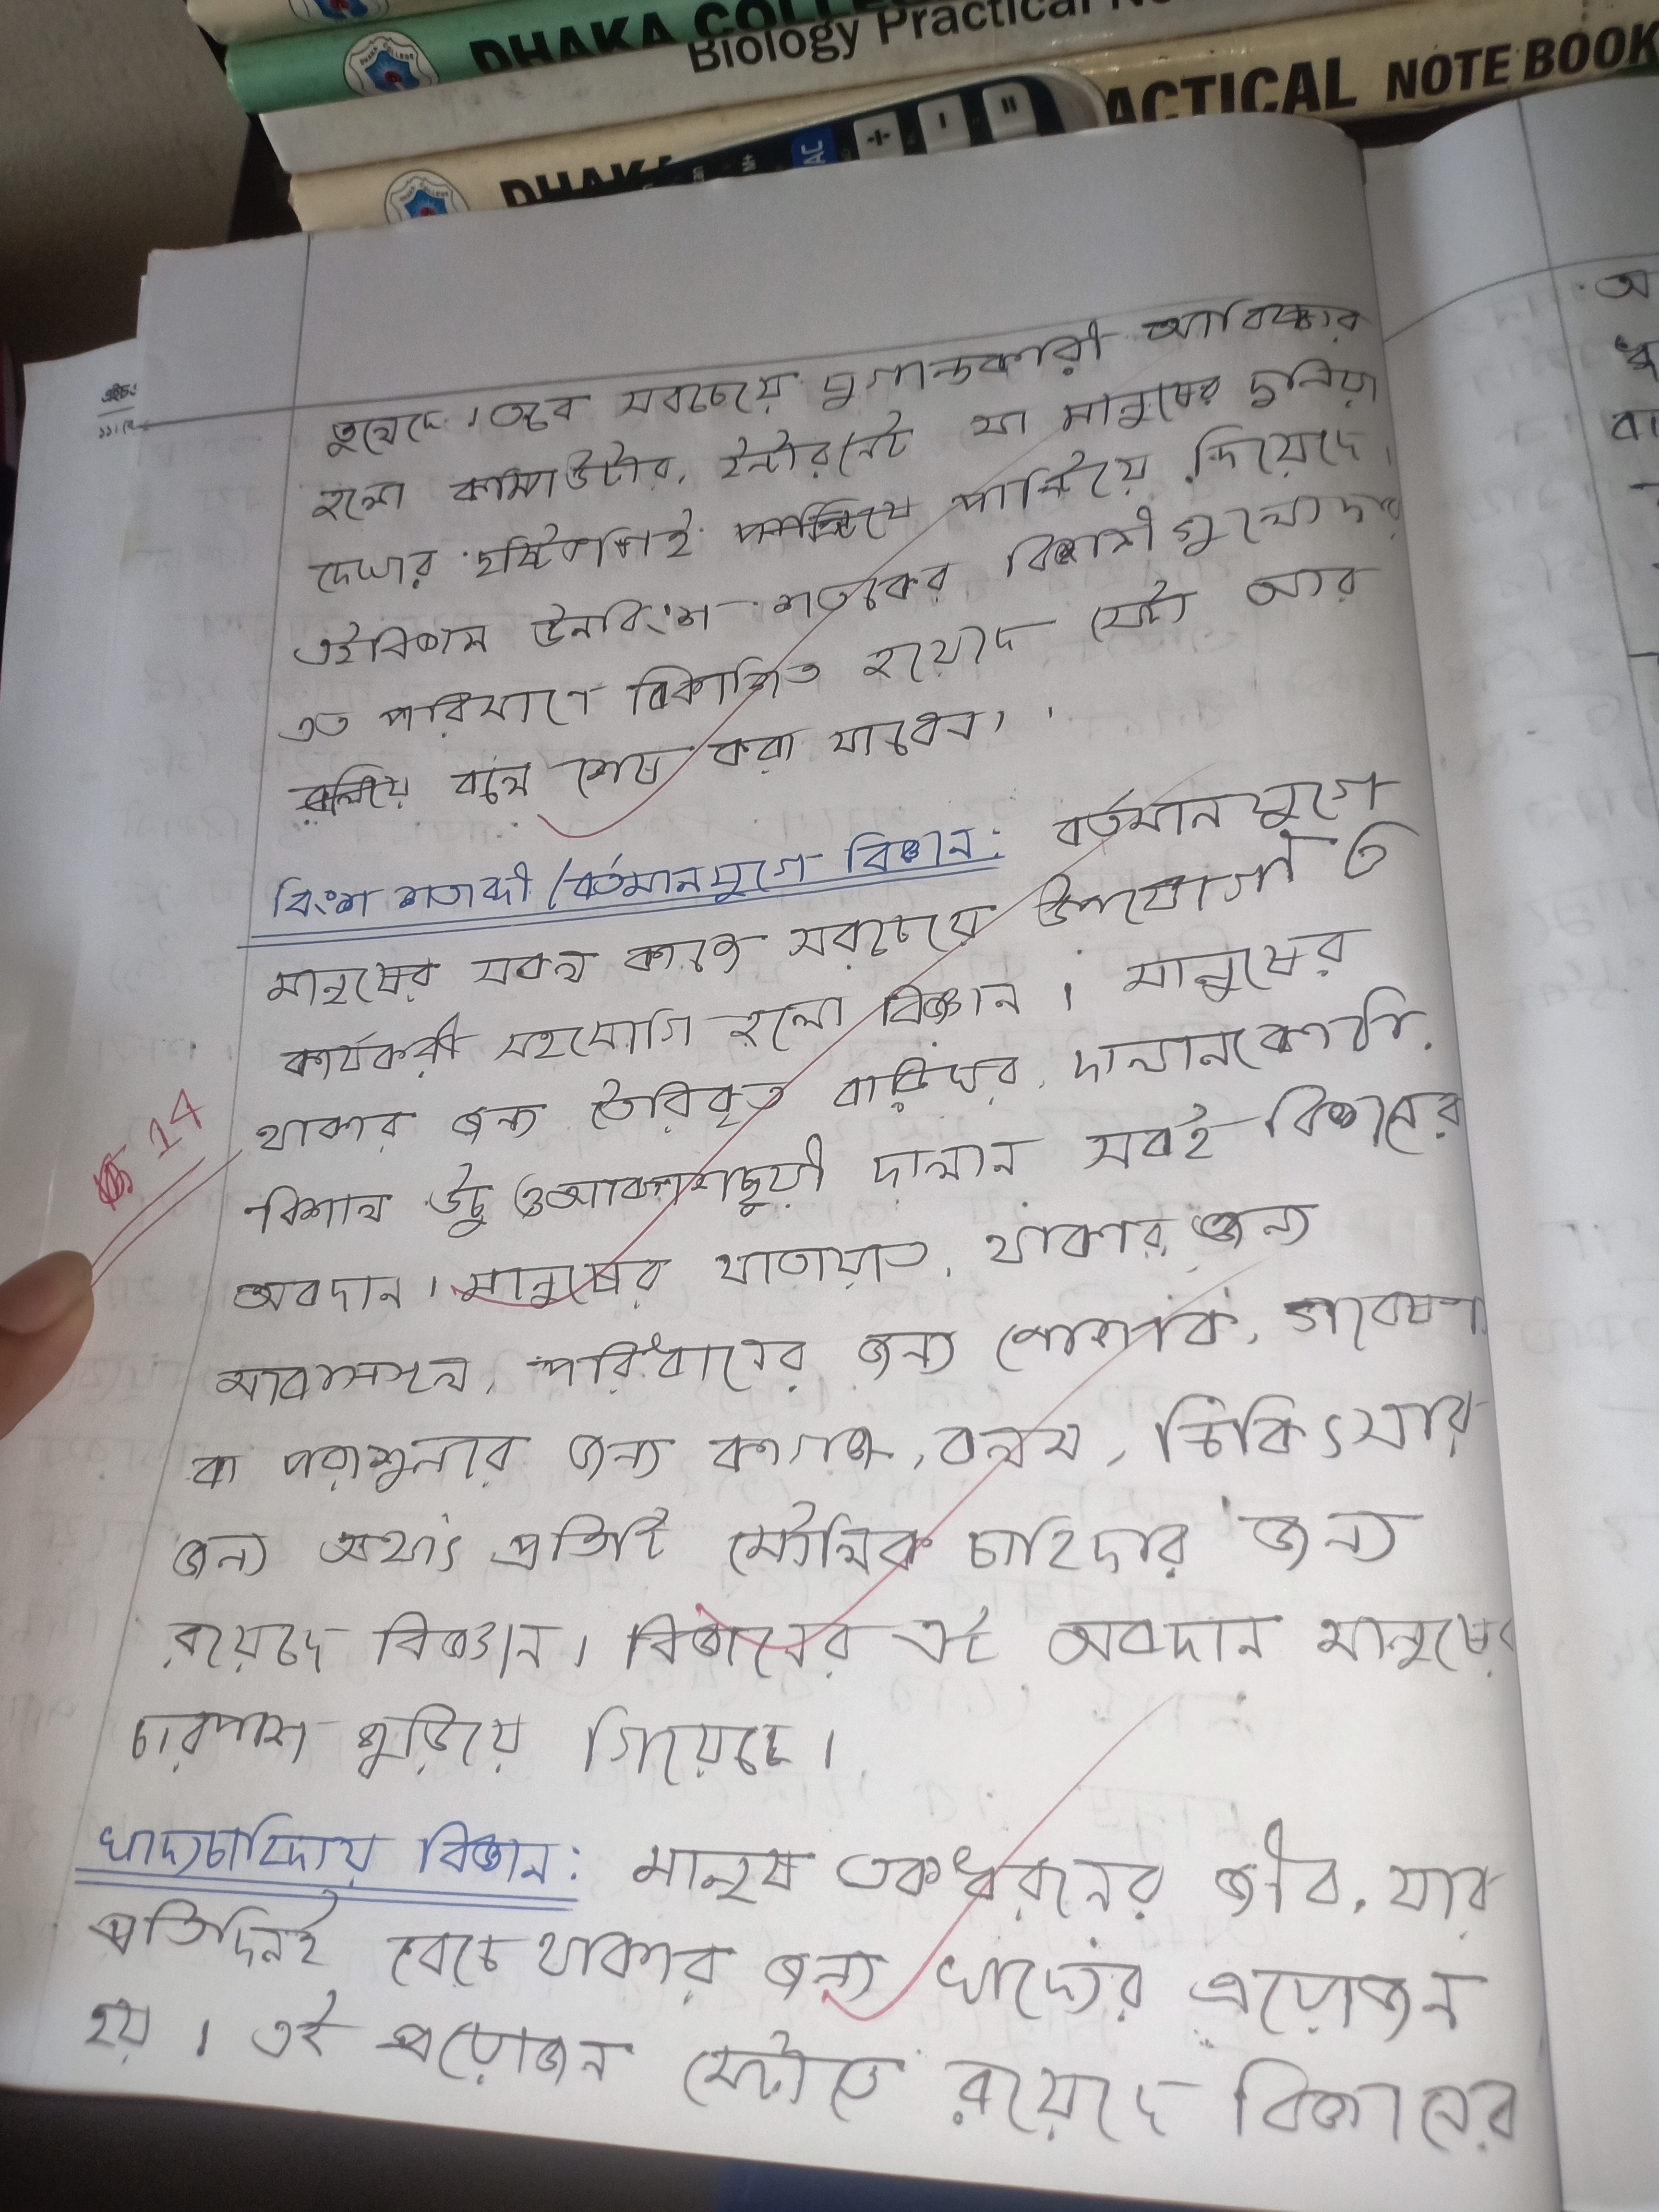 DHAKA COLLE
Biology Practical No
DHAKA
ACTICAL NOTE BOOK
AC ÷ − =
M+
তুলেছে। তবে সবচেয়ে যুগান্তকারী আবিষ্কার
হলো কম্পিউটার, ইন্টারনেট যা মানুষের দুনিয়া
দেখার দৃষ্টিভঙ্গিই পাল্টিয়ে দিয়েছে।
এই বিজ্ঞান উনবিংশ শতকের
এত পরিমাণে বিকাশিত হয়েছে যেটা আর
বলে শেষ করা যাবেনা।
বিংশ শতাব্দী/বর্তমান যুগে বিজ্ঞান: বর্তমান যুগে
মানুষের সকল কাজে সবচেয়ে উপযোগী ও
কার্যকরী সহযোগি হলো বিজ্ঞান। মানুষের
থাকার জন্য তৈরিকৃত বাড়িঘর, দালানকোঠা,
বিশাল উঁচু ও আকাশছুয়ী দালান সবই বিজ্ঞানের
অবদান। মানুষের যাতায়াত, থাকার জন্য
আবাসস্থল, পরিধানের জন্য পোশাক, গবেষণা
বা পড়াশুনার জন্য কাগজ, কলম, চিকিৎসার
জন্য অর্থাৎ প্রতিটি মৌলিক চাহিদার জন্য
রয়েছে বিজ্ঞান। বিজ্ঞানের এই অবদান মানুষের
চারপাশ জুড়িয়ে গিয়েছে।
14
খাদ্যচাহিদায় বিজ্ঞান: মানুষ একধরনের জীব, যার
প্রতিদিনই বেচে থাকার জন্য খাদ্যের প্রয়োজন
হয়। এই প্রয়োজন মেটাতে রয়েছে বিজ্ঞানের